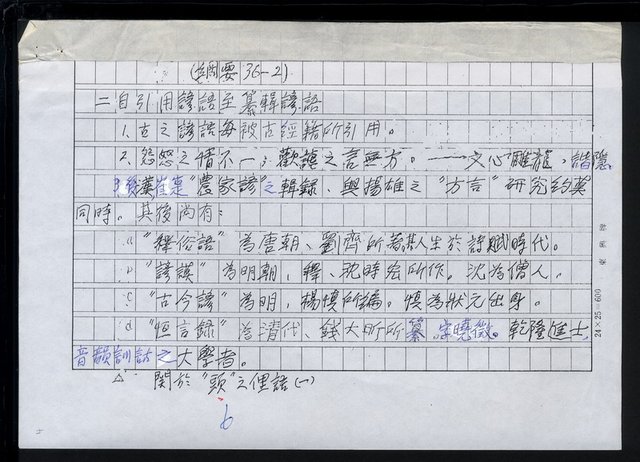 (綱要36-2)
二自引用諺語至纂輯諺語
1、古之諺語每被古經籍所引用。
2、怨怒之情不一；歡謔之言無方。——文心雕龍，諧隱
3、後漢崔寔"農家諺"之輯錄，與揚雄之"方言"研究約莫
同時。其後尚有：
a"釋俗語"為唐朝、劉齊所著其人生於詩賦時代。
b"諺謨"為明朝，釋、沈時宏所作。沈為僧人。
c"古今諺"為明，楊慎所編。慎為狀元出身。
d"恒言錄"為清代、錢大昕所纂 字曉徵。乾隆進士，
音韻訓詁之大學者。
△ 關於"頭"之俚語(一)
6
24×25=600